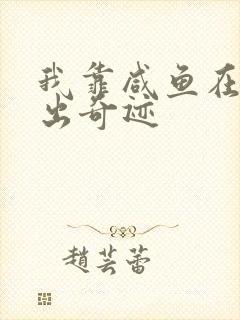 我靠咸鱼在
出奇迹
趙芸蕾